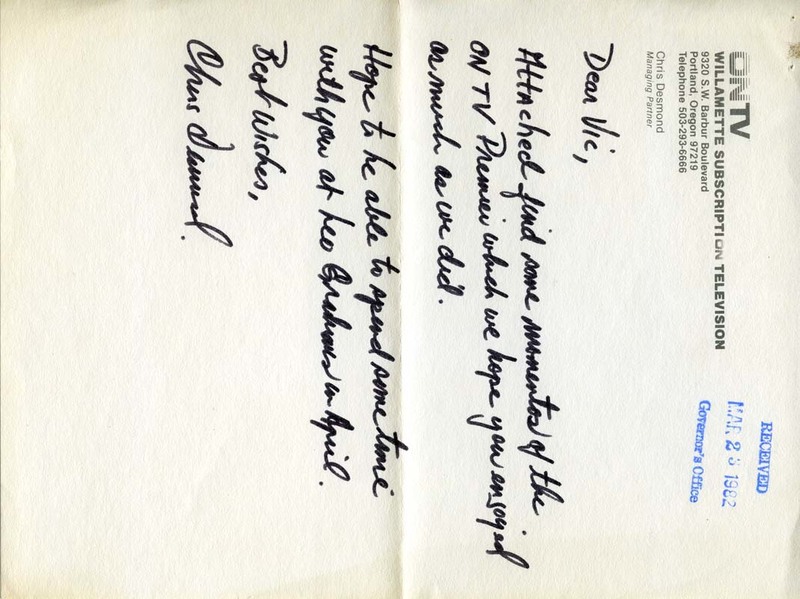 ON TV
WILLAMETTE SUBSCRIPTION TELEVISION
9320 S.W. Barbur Boulevard
Portland, Oregon 97219
Telephone 503-293-6666
Chris Desmond
Managing Partner
RECEIVED
MAR 1982
Governor's Office
Dear Vic,
Attached find some momentos of the
ON TV Premier which we hope you enjoyed
as much as we did.
Hope to be able to spend some time
with you at Leo in April.
Best Wishes,
Chris Desmond.